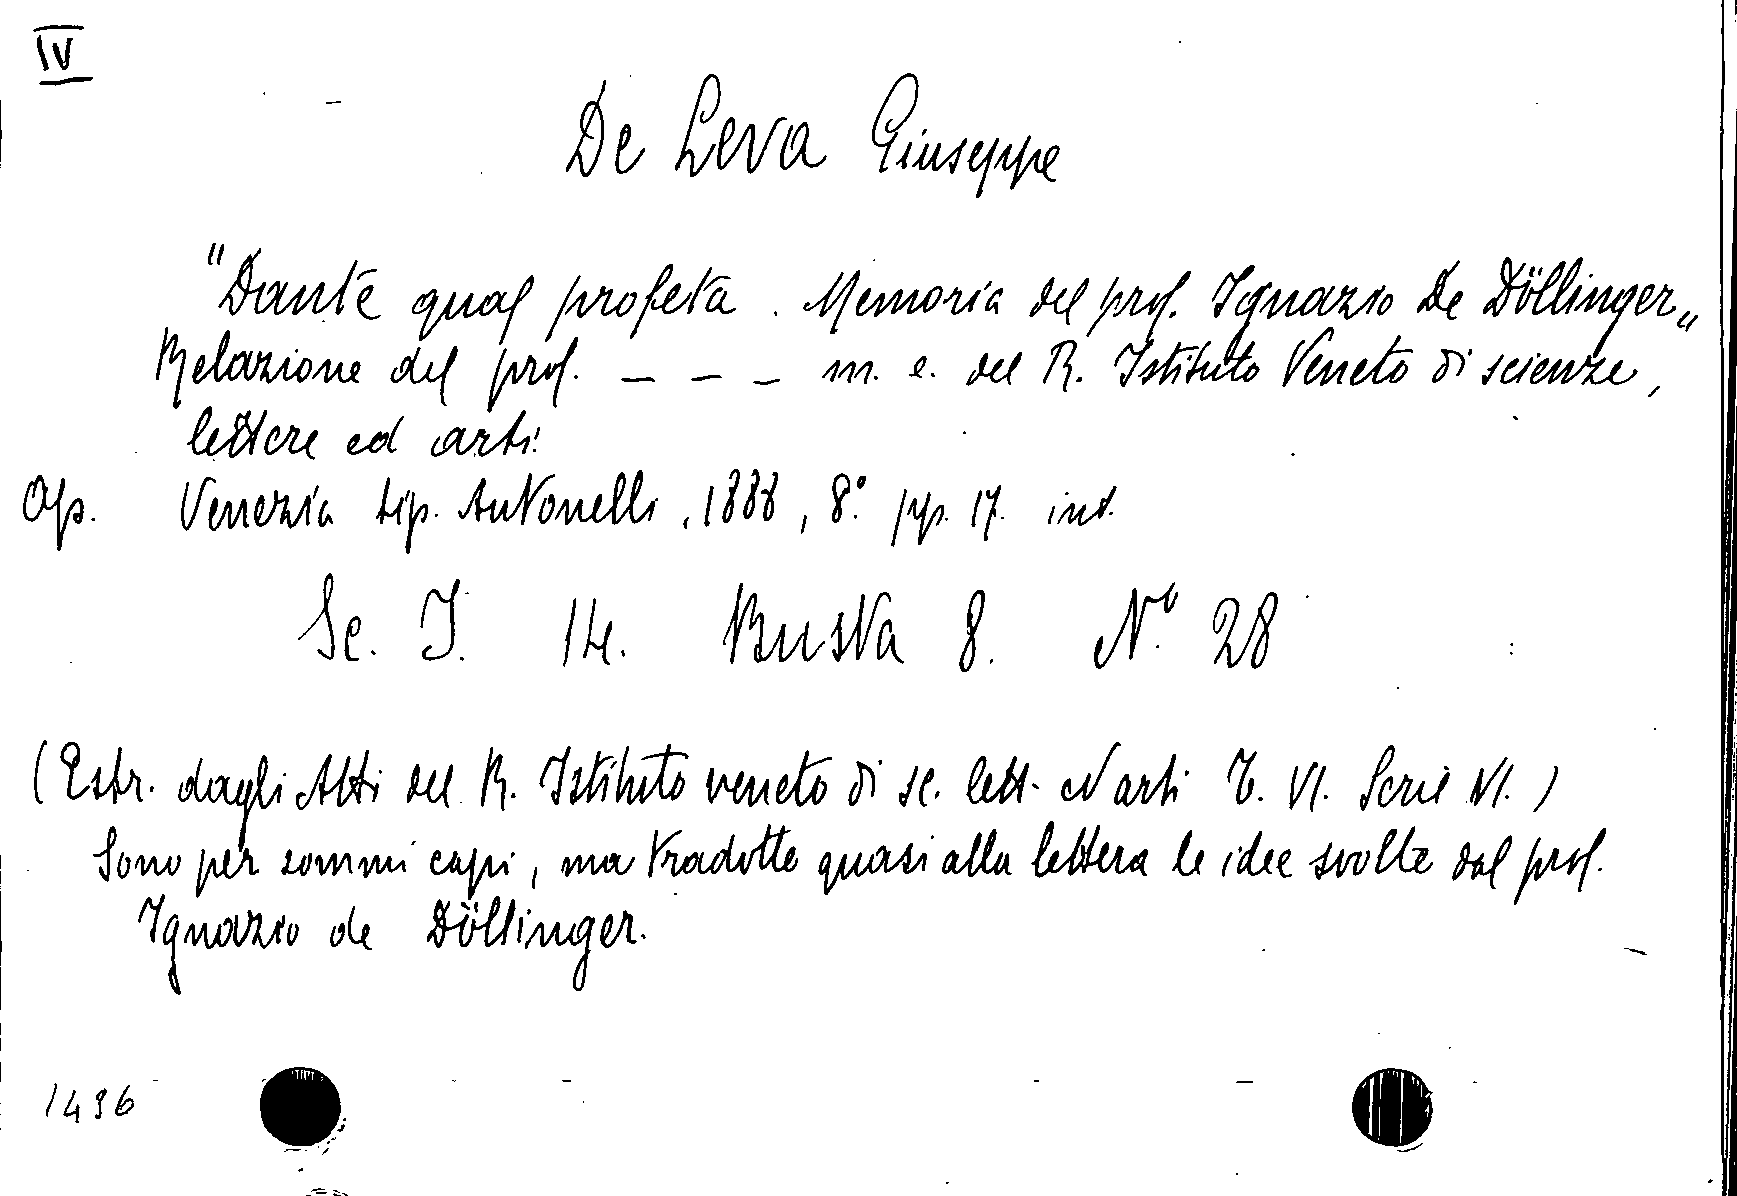 IV
De Leva Giuseppe
"Dante qual profeta. Memoria del prof. Ignazio De Döllinger„
Relazione del prof. _ _ _ m. e. del R. Istituto Veneto di scienze,
lettere ed arti.
Op. Venezia tip. Antonelli, 1888, 8° pp. 17. int.
Sc. I. 14. Busta 8. N.° 28
(Estr. dagli Atti del R. Istituto veneto di sc. lett. ed arti T. VI. Serie VI.)
Sono per sommi capi, ma tradotte quasi alla lettera le idee svolte dal prof.
Ignazio de Döllinger.
1496